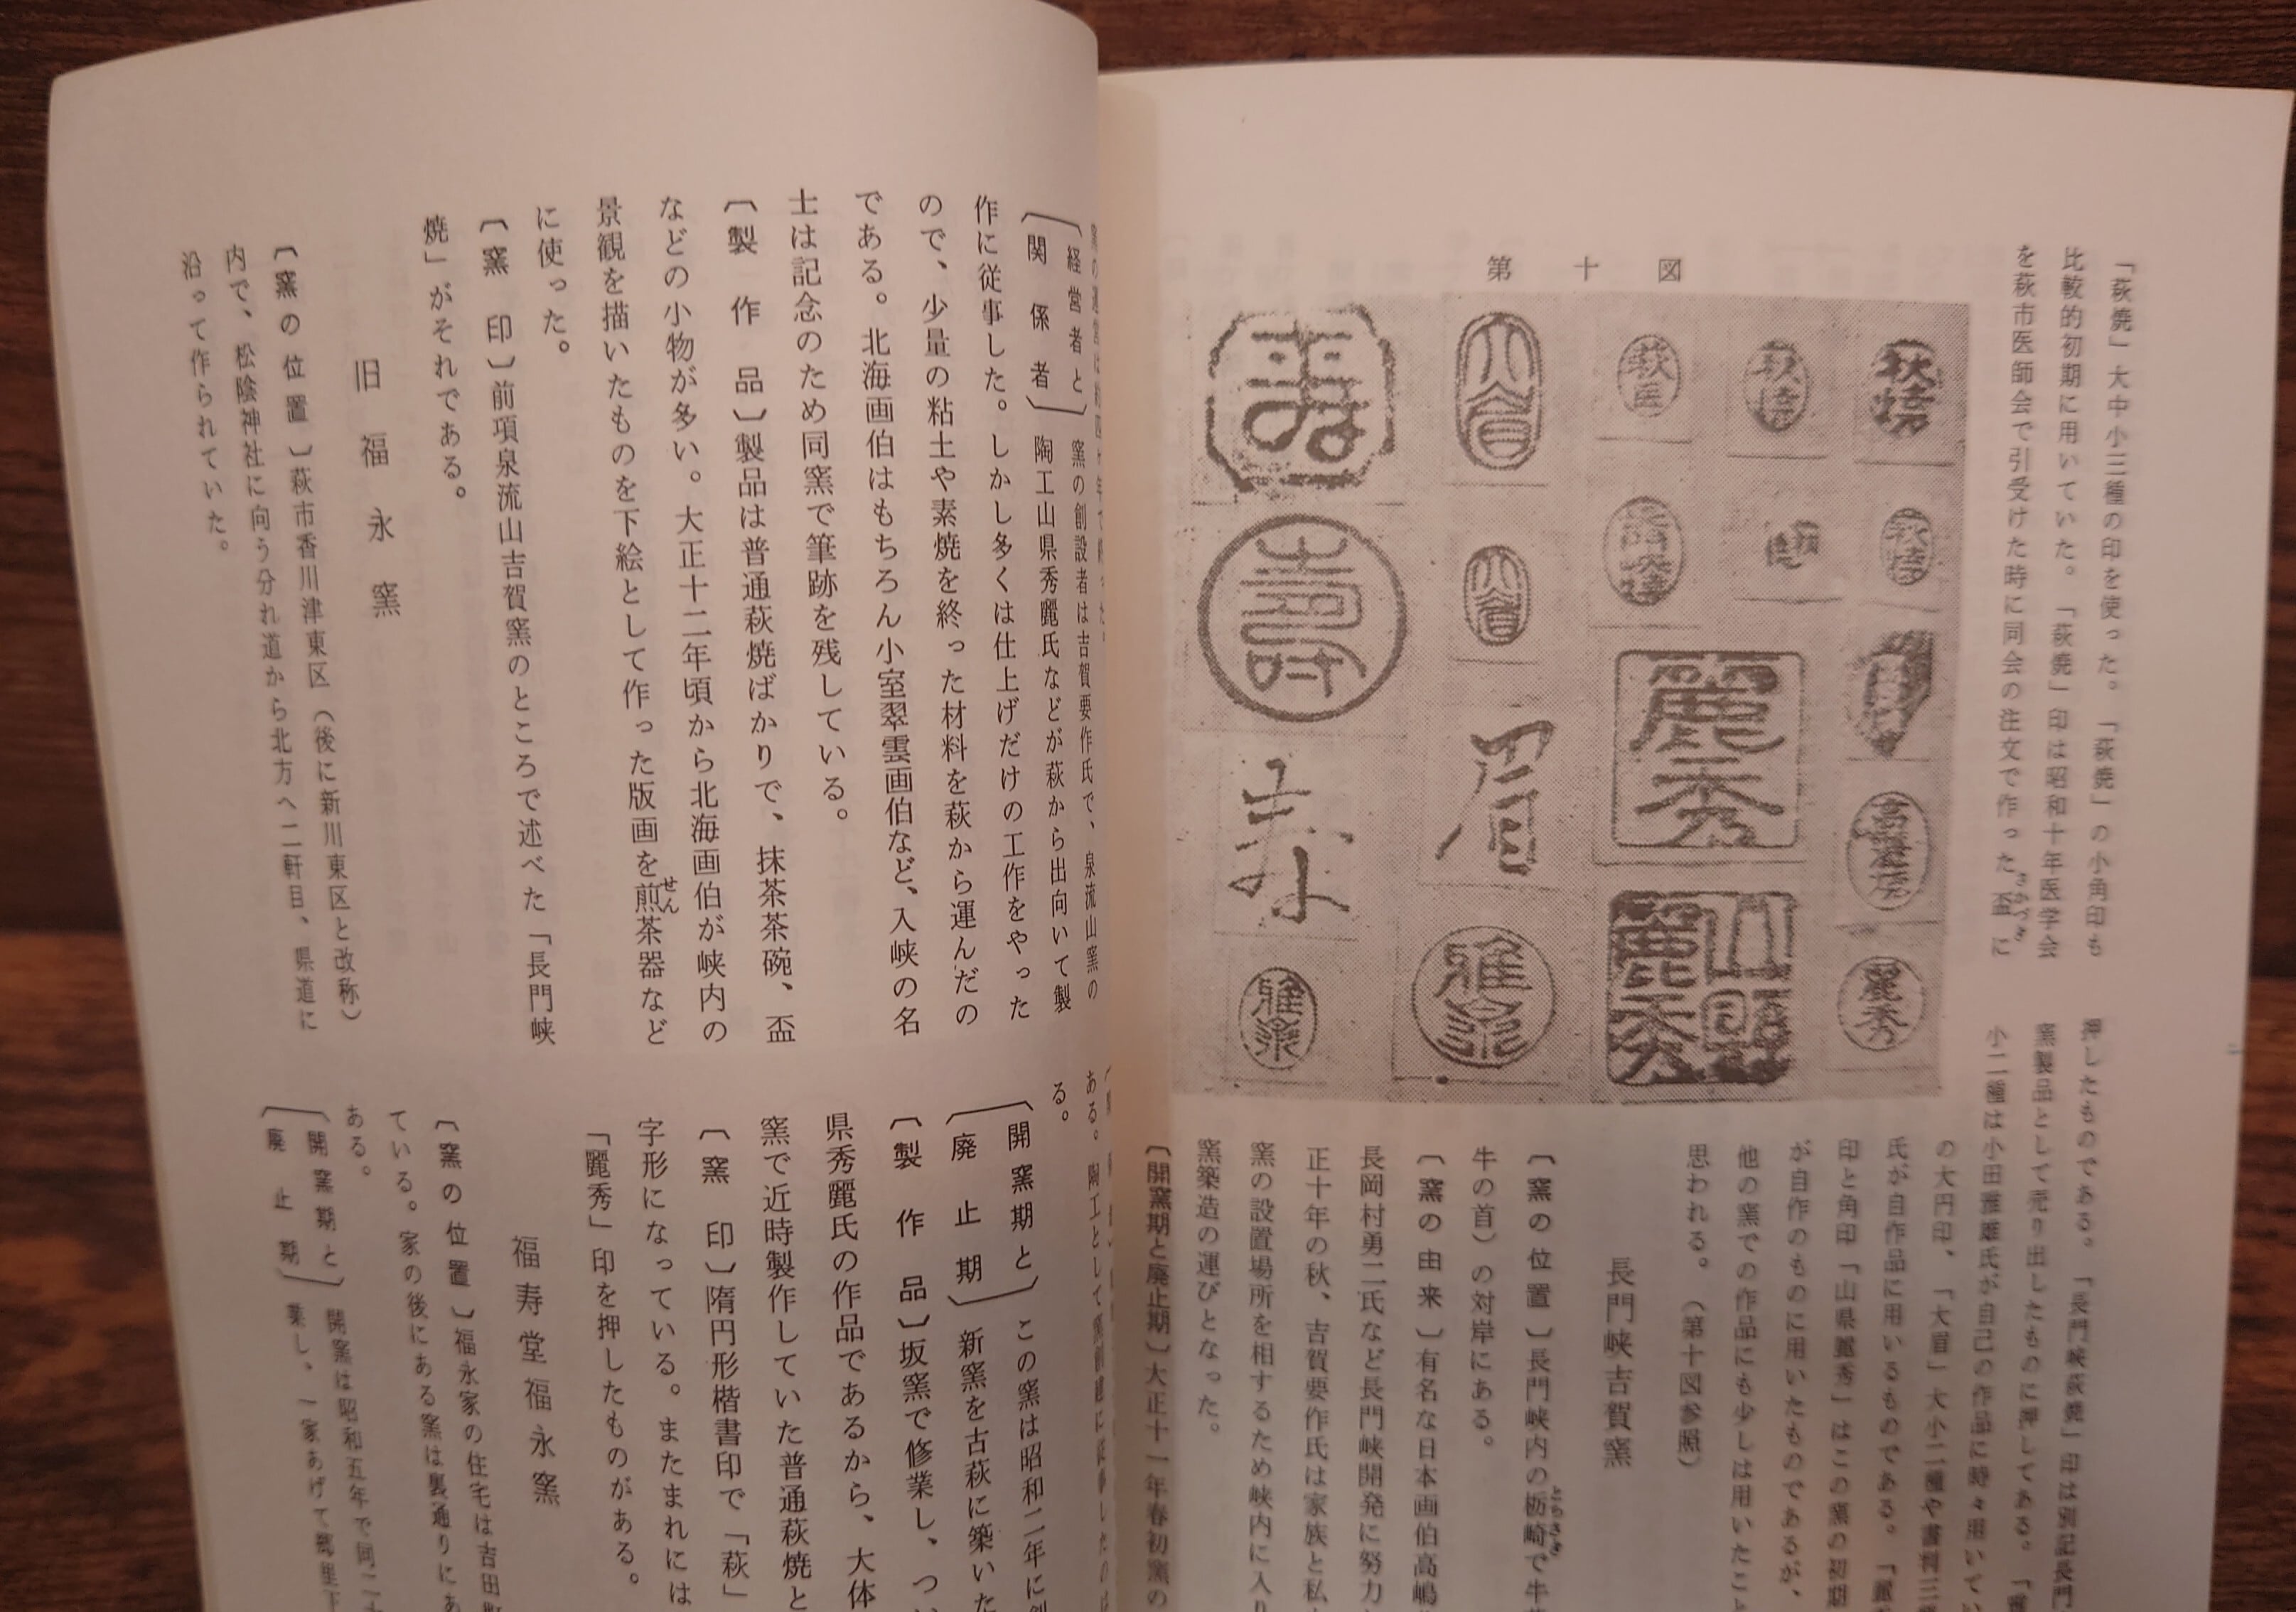 「萩焼」大中小三種の印を使った。「萩焼」の小角印も
比較的初期に用いていた。「萩焼」印は昭和十年医学会
を萩市医師会で引受けた時に同会の注文で作った盃に
さかづき
第十図
萩焼
萩焼
萩医
大眉
寿
萩焼
大眉
寿
麗秀
眉
寿
麗秀
山県麗秀
雅泉
雅泉
押したものである。「長門峡萩焼」印は別記長門
窯製品として売り出したものに押してある。「寿
小二種は小田雅雄氏が自己の作品に時々用いてい
の大円印、「大眉」大小二種や書判三種
氏が自作品に用いるものである。「麗秀
印と角印「山県麗秀」はこの窯の初期
が自作のものに用いたものであるが、
他の窯での作品にも少しは用いたこと
思われる。（第十図参照）
長門峡吉賀窯
〔窯の位置〕長門峡内の栃崎で牛
とちさき
牛の首）の対岸にある。
〔窯の由来〕有名な日本画伯高嶋
長岡村勇二氏など長門峡開発に努力
正十年の秋、吉賀要作氏は家族と私
窯の設置場所を相するため峡内に入り
窯築造の運びとなった。
〔開窯期と廃止期〕大正十一年春初窯の
〔経営者と
関係者〕
窯の創設者は吉賀要作氏で、泉流山窯の
陶工山県秀麗氏などが萩から出向いて製
作に従事した。しかし多くは仕上げだけの工作をやった
ので、少量の粘土や素焼を終った材料を萩から運んだの
である。北海画伯はもちろん小室翠雲画伯など、入峡の名
士は記念のため同窯で筆跡を残している。
〔製作品〕製品は普通萩焼ばかりで、抹茶茶碗、盃
などの小物が多い。大正十二年頃から北海画伯が峡内の
景観を描いたものを下絵として作った版画を煎茶器など
せん
に使った。
〔窯印〕前項泉流山吉賀窯のところで述べた「長門峡
焼」がそれである。
旧福永窯
〔窯の位置〕萩市香川津東区（後に新川東区と改称）
内で、松陰神社に向う分れ道から北方へ二軒目、県道に
沿って作られていた。
ある。陶工として
る。
〔開窯期と
廃止期〕
この窯は昭和二年に創
新窯を古萩に築いた
〔製作品〕坂窯で修業し、つい
県秀麗氏の作品であるから、大体
窯で近時製作していた普通萩焼と
〔窯印〕隋円形楷書印で「萩」
字形になっている。またまれには
「麗秀」印を押したものがある。
福寿堂福永窯
〔窯の位置〕福永家の住宅は吉田町
ている。家の後にある窯は裏通りにあ
ある。
〔開窯期と
廃止期〕
開窯は昭和五年で同二十
業し、一家あげて郷里下